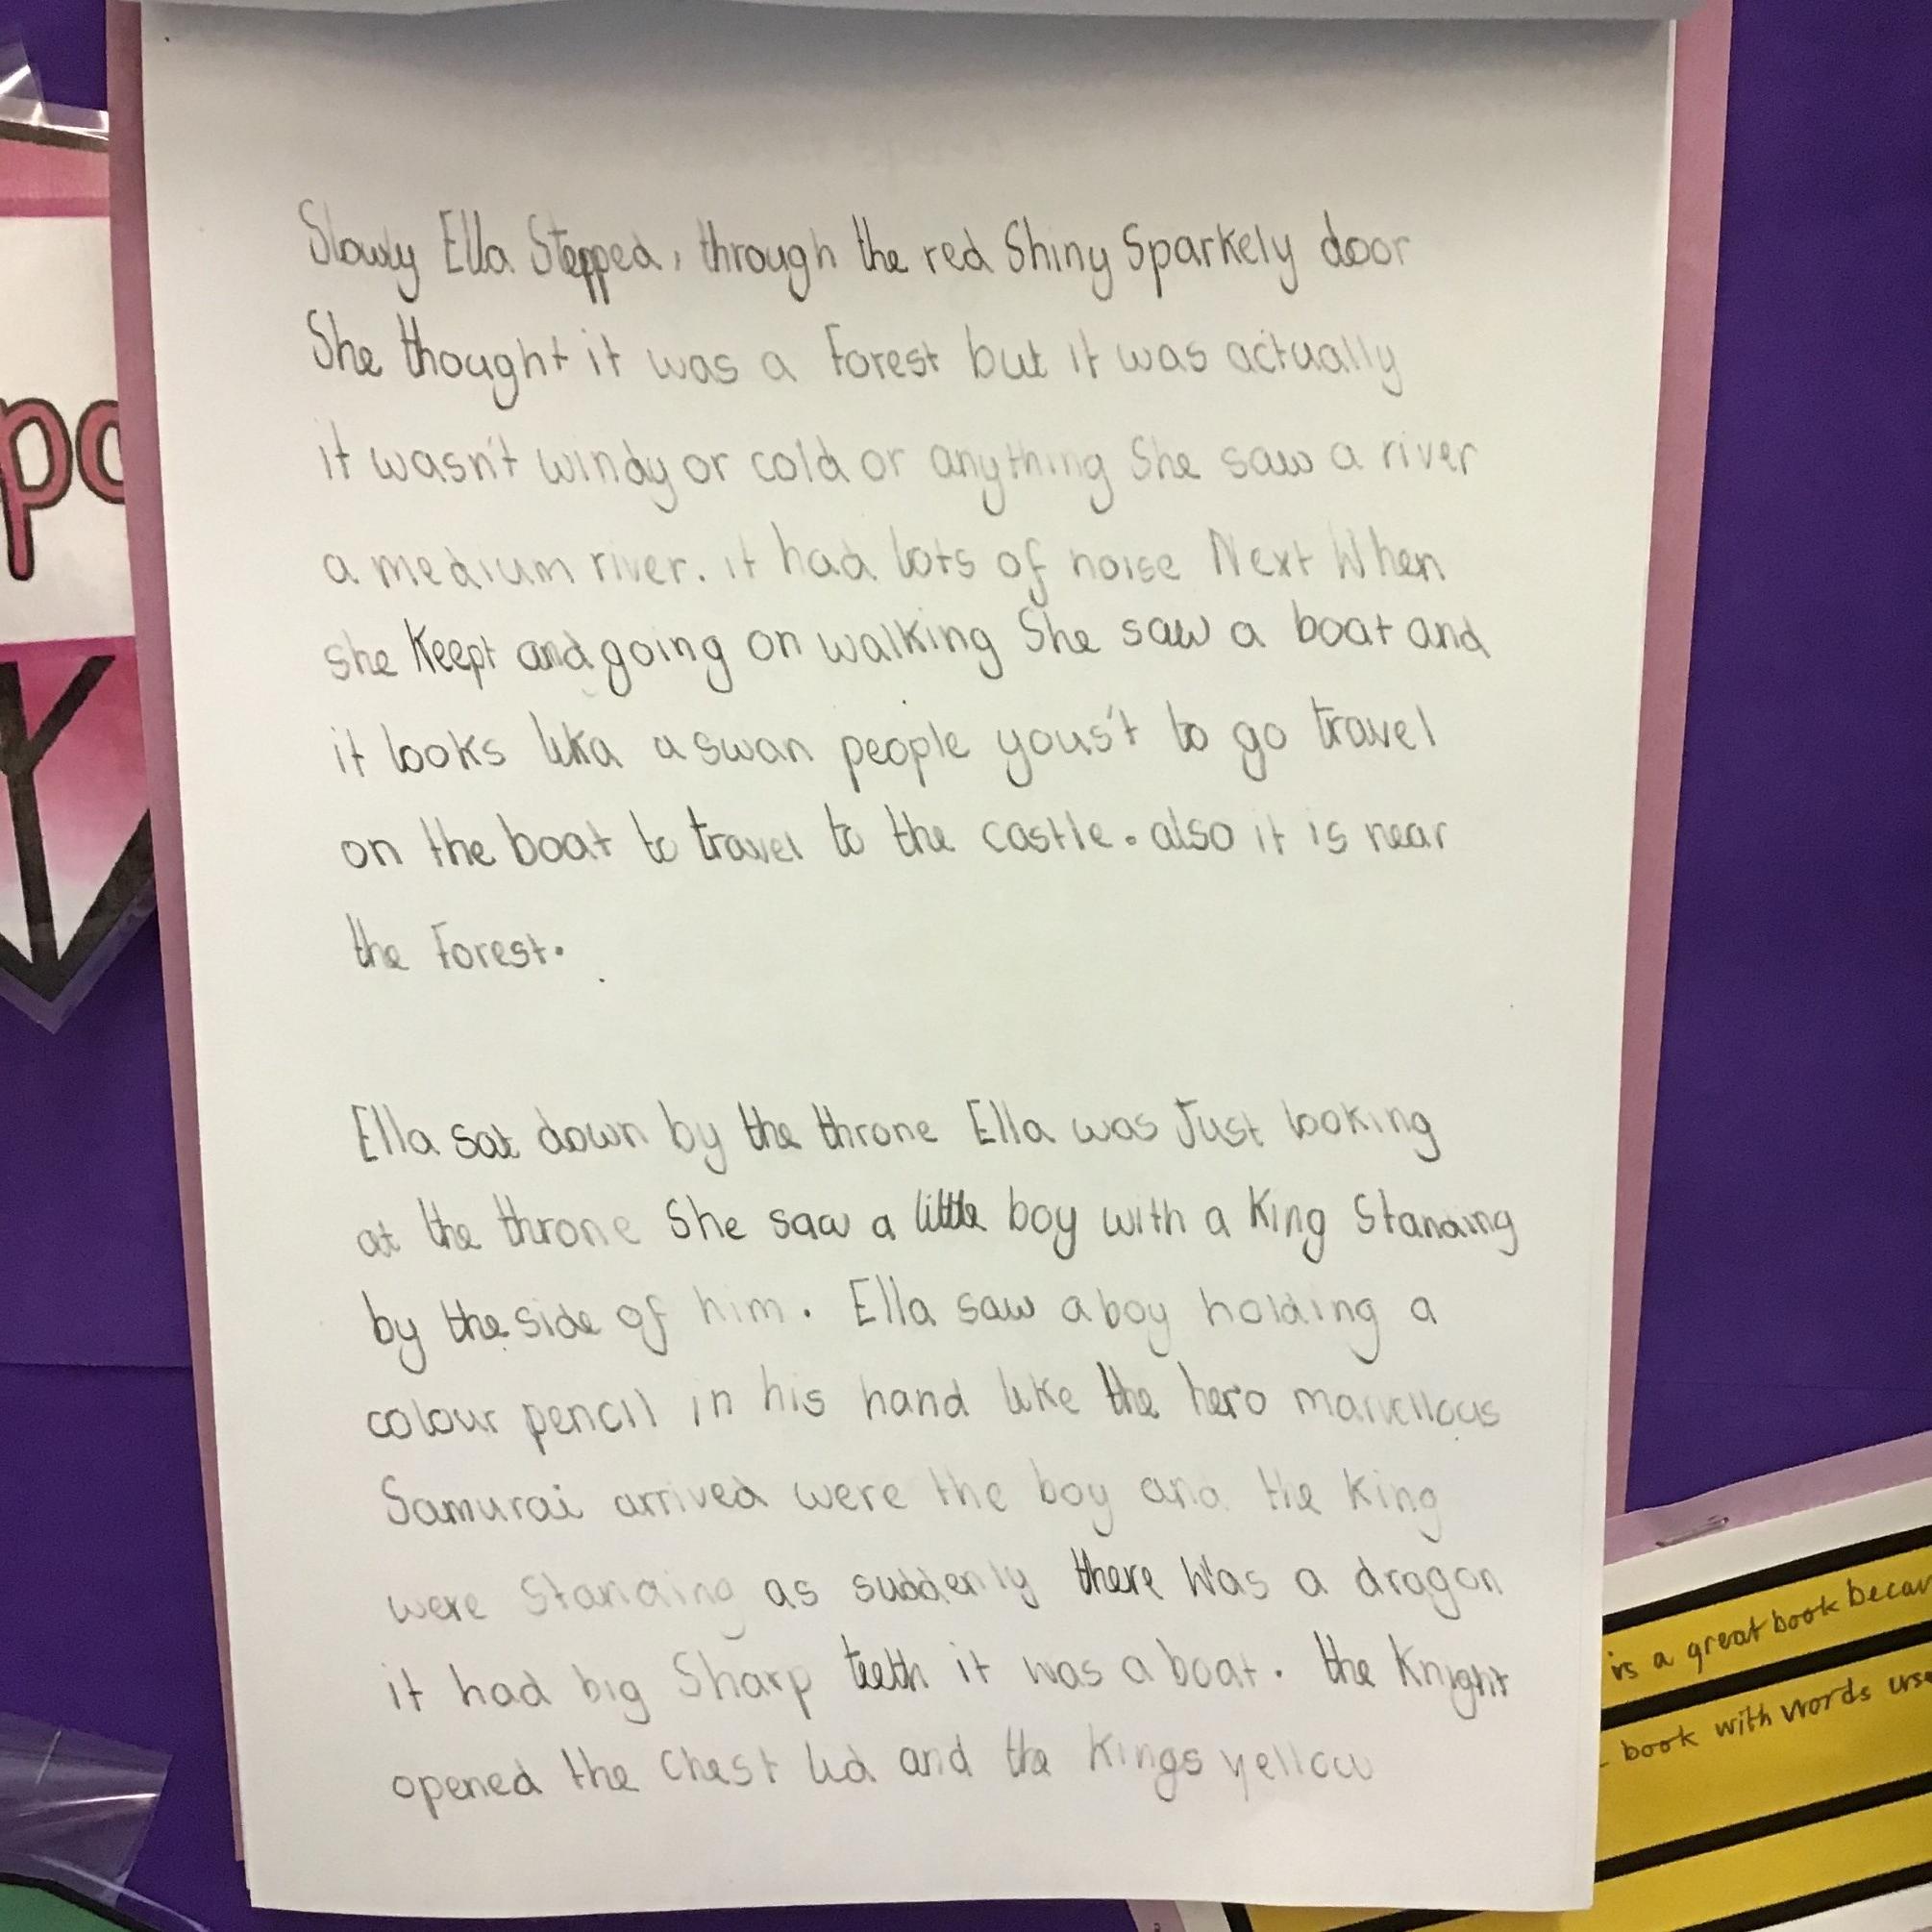 Slowly Ella Stepped, through the red Shiny Sparkely door
She thought it was a Forest but it was actually
it wasn't windy or cold or anything She saw a river
a medium river. it had lots of noise Next When
she Keept and going on walking She saw a boat and
it looks lika a swan people yous't to go travel
on the boat to travel to the castle. also it is near
the Forest.
Ella sat down by the throne Ella was Just looking
at the throne She saw a little boy with a King Standing
by the side of him. Ella saw a boy holding a
colour pencil in his hand like the hero marvellous
Samurai arrived were the boy and the King
were Standing as suddenly there Was a dragon
it had big Sharp teeth it was a boat. the Knight
opened the Chest lid and the Kings yellow
po
is a great book becau
book with words use